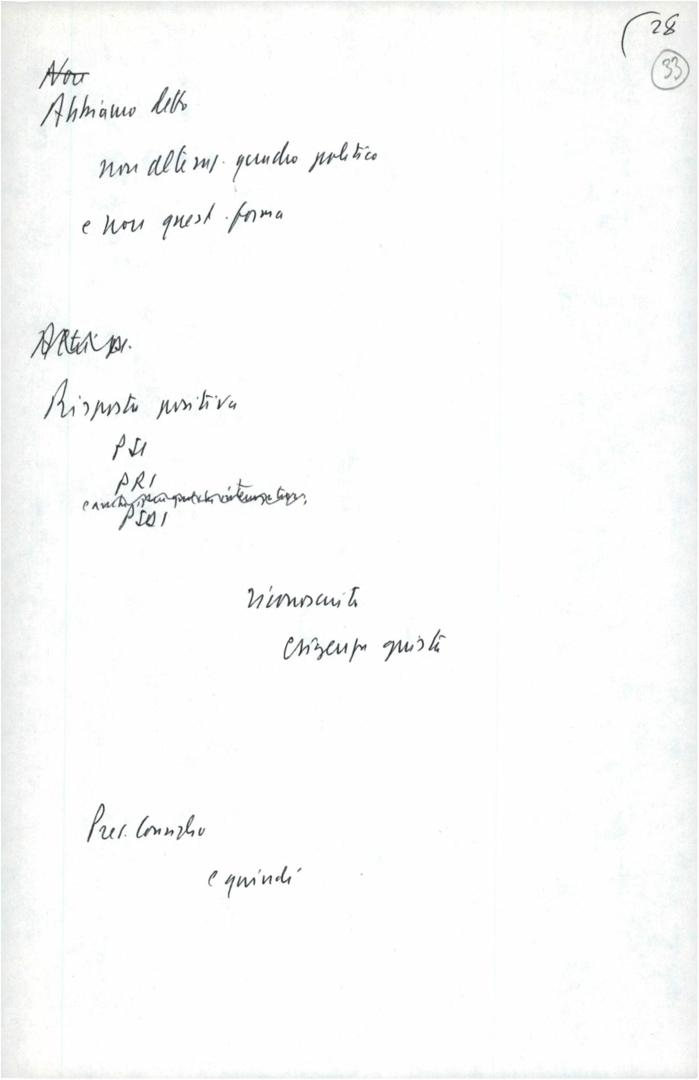 28
33
Non
Abbiamo detto
non alteraz. quadro politico
e non quest. forma
Risposta positiva
PSI
PRI
PSDI
riconosciuta
esigenza giusta
Pres. Consiglio
e quindi